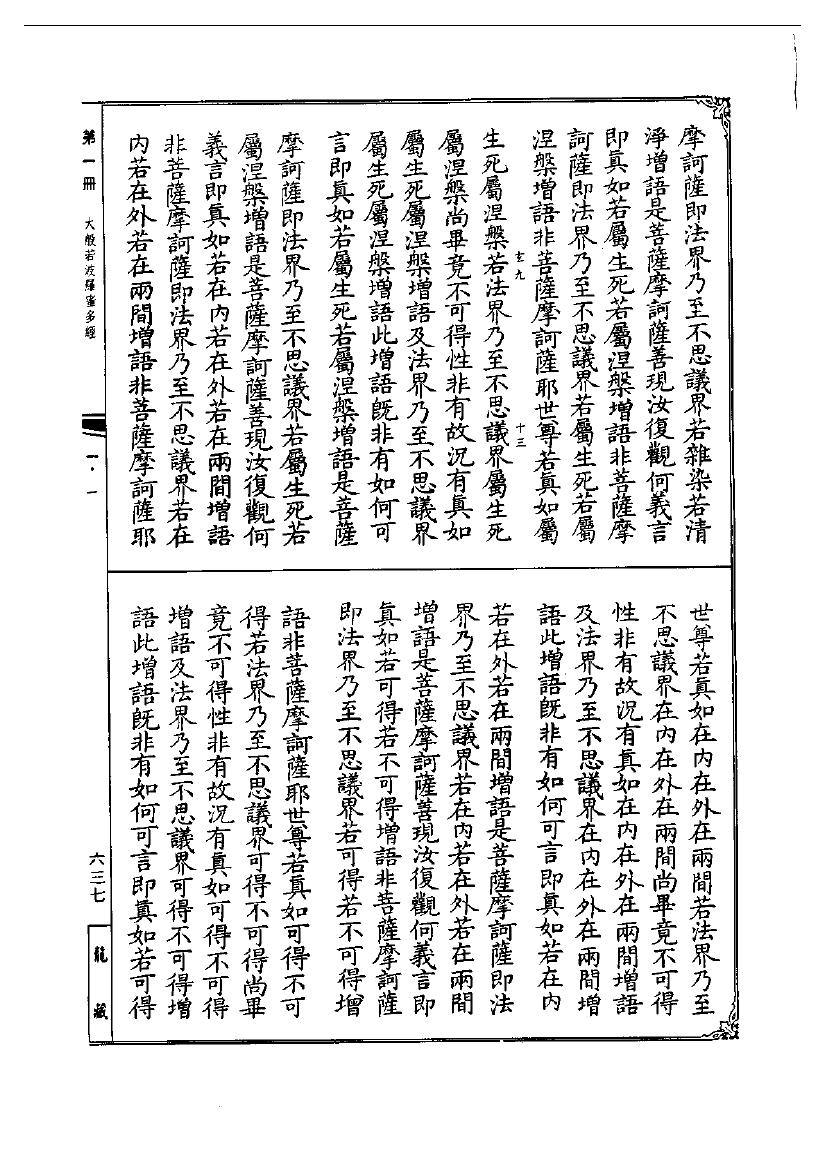 摩訶薩即法界乃至不思議界若雜染若清
淨增語是菩薩摩訶薩善現汝復觀何義言
即眞如若屬生死若屬涅槃增語非菩薩摩
訶薩即法界乃至不思議界若屬生死若屬
涅槃增語非菩薩摩訶薩耶世尊若眞如屬
玄九
十三
生死屬涅槃若法界乃至不思議界屬生死
屬涅槃尚畢竟不可得性非有故況有眞如
屬生死屬涅槃增語及法界乃至不思議界
屬生死屬涅槃增語此增語旣非有如何可
言即眞如若屬生死若屬涅槃增語是菩薩
摩訶薩即法界乃至不思議界若屬生死若
屬涅槃增語是菩薩摩訶薩善現汝復觀何
義言即眞如若在內若在外若在兩間增語
非菩薩摩訶薩即法界乃至不思議界若在
內若在外若在兩間增語非菩薩摩訶薩耶
世尊若眞如在內在外在兩間若法界乃至
不思議界在內在外在兩間尚畢竟不可得
性非有故況有眞如在內在外在兩間增語
及法界乃至不思議界在內在外在兩間增
語此增語旣非有如何可言即眞如若在內
若在外若在兩間增語是菩薩摩訶薩即法
界乃至不思議界若在內若在外若在兩間
增語是菩薩摩訶薩善現汝復觀何義言即
眞如若可得若不可得增語非菩薩摩訶薩
即法界乃至不思議界若可得若不可得增
語非菩薩摩訶薩耶世尊若眞如可得不可
得若法界乃至不思議界可得不可得尚畢
竟不可得性非有故況有眞如可得不可得
增語及法界乃至不思議界可得不可得增
語此增語旣非有如何可言即眞如若可得
第一冊 大般若波羅蜜多經
一·一
六三七
龍藏